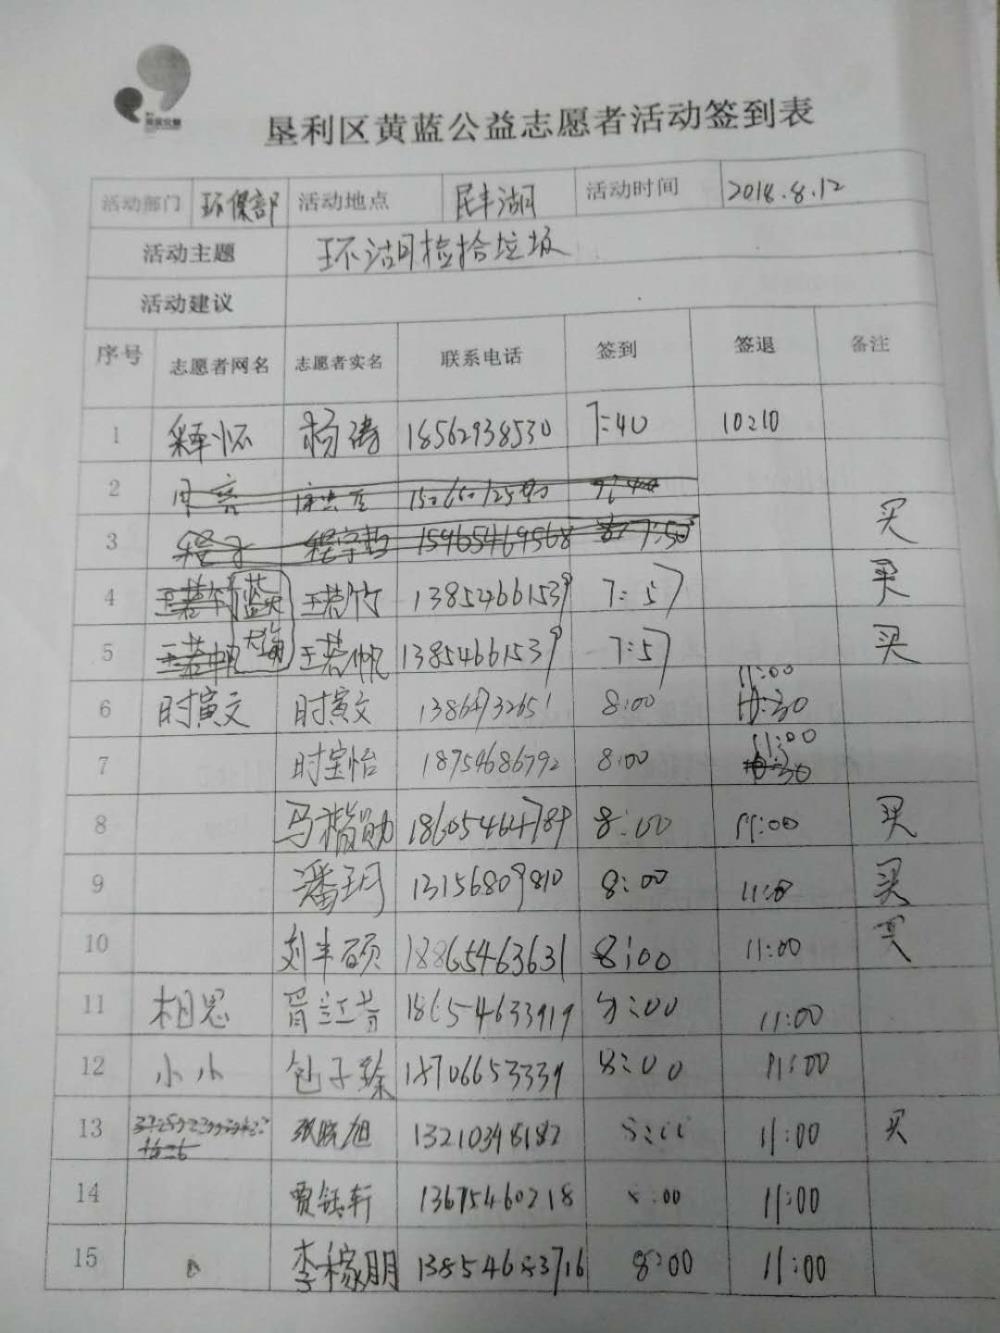 垦利区黄蓝公益志愿者活动签到表
活动部门 环保部 活动地点 民丰湖 活动时间 2018.8.12
活动主题 环湖捡拾垃圾
活动建议
序号 志愿者网名 志愿者实名 联系电话 签到 签退 备注
1 释怀 杨涛 18562938530 7:40 10:10
2
3 15965469568 7:50 买
4 蓝天 王若竹 138524661539 7:57 买
5 大海 王若帆 13854661539 7:57 买
6 时寅文 时寅文 8:00 11:00
7 时宝怡 18754686792 8:00 11:00
8 马楷勋 18605464789 8:00 11:00 买
9 潘玥 13156809810 8:00 11:00 买
10 刘丰硕 18865463631 8:00 11:00 买
11 相思 胥江芳 18654633919 8:00 11:00
12 小小 包子臻 18706653339 8:00 11:00
13 张晓旭 13210348182 11:00 买
14 贾钰轩 13675460218 :00 11:00
15 李稼朋 8:00 11:00